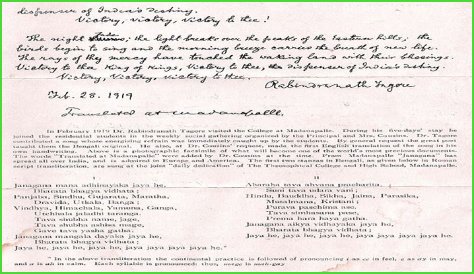 dispenser of India's destiny.
Victory, Victory, Victory to thee!
The night fades; the light breaks over the peaks of the Eastern hills; the
birds begin to sing and the morning breeze carries the breath of new life.
The rays of thy mercy have touched the waking land with their blessings.
Victory to thee King of Kings, Victory to thee, the dispenser of India's destiny.
Victory, Victory, Victory to thee.
Rabindranath Tagore
Feb. 28. 1919
Translated at Madanapalle
In February 1919 Dr. Rabindranath Tagore visited the College at Madanapalle. During his five-days' stay he
joined the residential students in the weekly social gathering organised by the Principal and Mrs. Cousins. Dr. Tagore
contributed a song whose energising refrain was immediately caught up by the students. By general request the great poet
taught them the Bengali original. He also, at Dr. Cousins' request, made the first English translation of the song in his
own handwriting. The above is a photographic facsimile of what will become one of the world's most precious documents.
The words "Translated at Madanapalle" were added by Dr. Cousins at the time. From Madanapalle "Janagana" has
spread all over India, and is admired in Europe and America. The first two stanzas in Bengali, as given below in Roman
script transliteration, are sung as the joint "daily dedication" of The Theosophical College and High School, Madanapalle.
I
Janagana mana adhinayaka jaya he,
Bharata bhagya vidhata;
Panjaba, Sindhu, Gujarata, Maratha,
Dravida, Utkala, Banga;
Vindhya, Himachala, Yamuna, Ganga,
Uchhala jaladhi taranga.
Tava shubha name, jage,
Tava shubha asisha mage,
Gahe tava jaya gatha.
Janagana mangala dayaka jaya he,
Bharata bhagya vidhata;
Jaya he, jaya he, jaya he, jaya jaya jaya jaya he.*
II
Aharaha tava ahvana pracharita,
Suni tava udara vani;
Hindu, Bauddha, Sikha, Jaina, Parasika,
Musalmana, Kristani;
Purava paschima ase,
Tava simhasana pase,
Prema hara haya gatha.
Janagana aikya vidhayaka jaya he,
Bharata bhagya vidhata;
Jaya he, jaya he, jaya he, jaya jaya jaya jaya he.
* In the above transliteration the continental practice is followed of pronouncing i as ee in feel, e as ay in may,
and a as ah in calm. Each syllable is pronounced: thus, manga is mah-gay